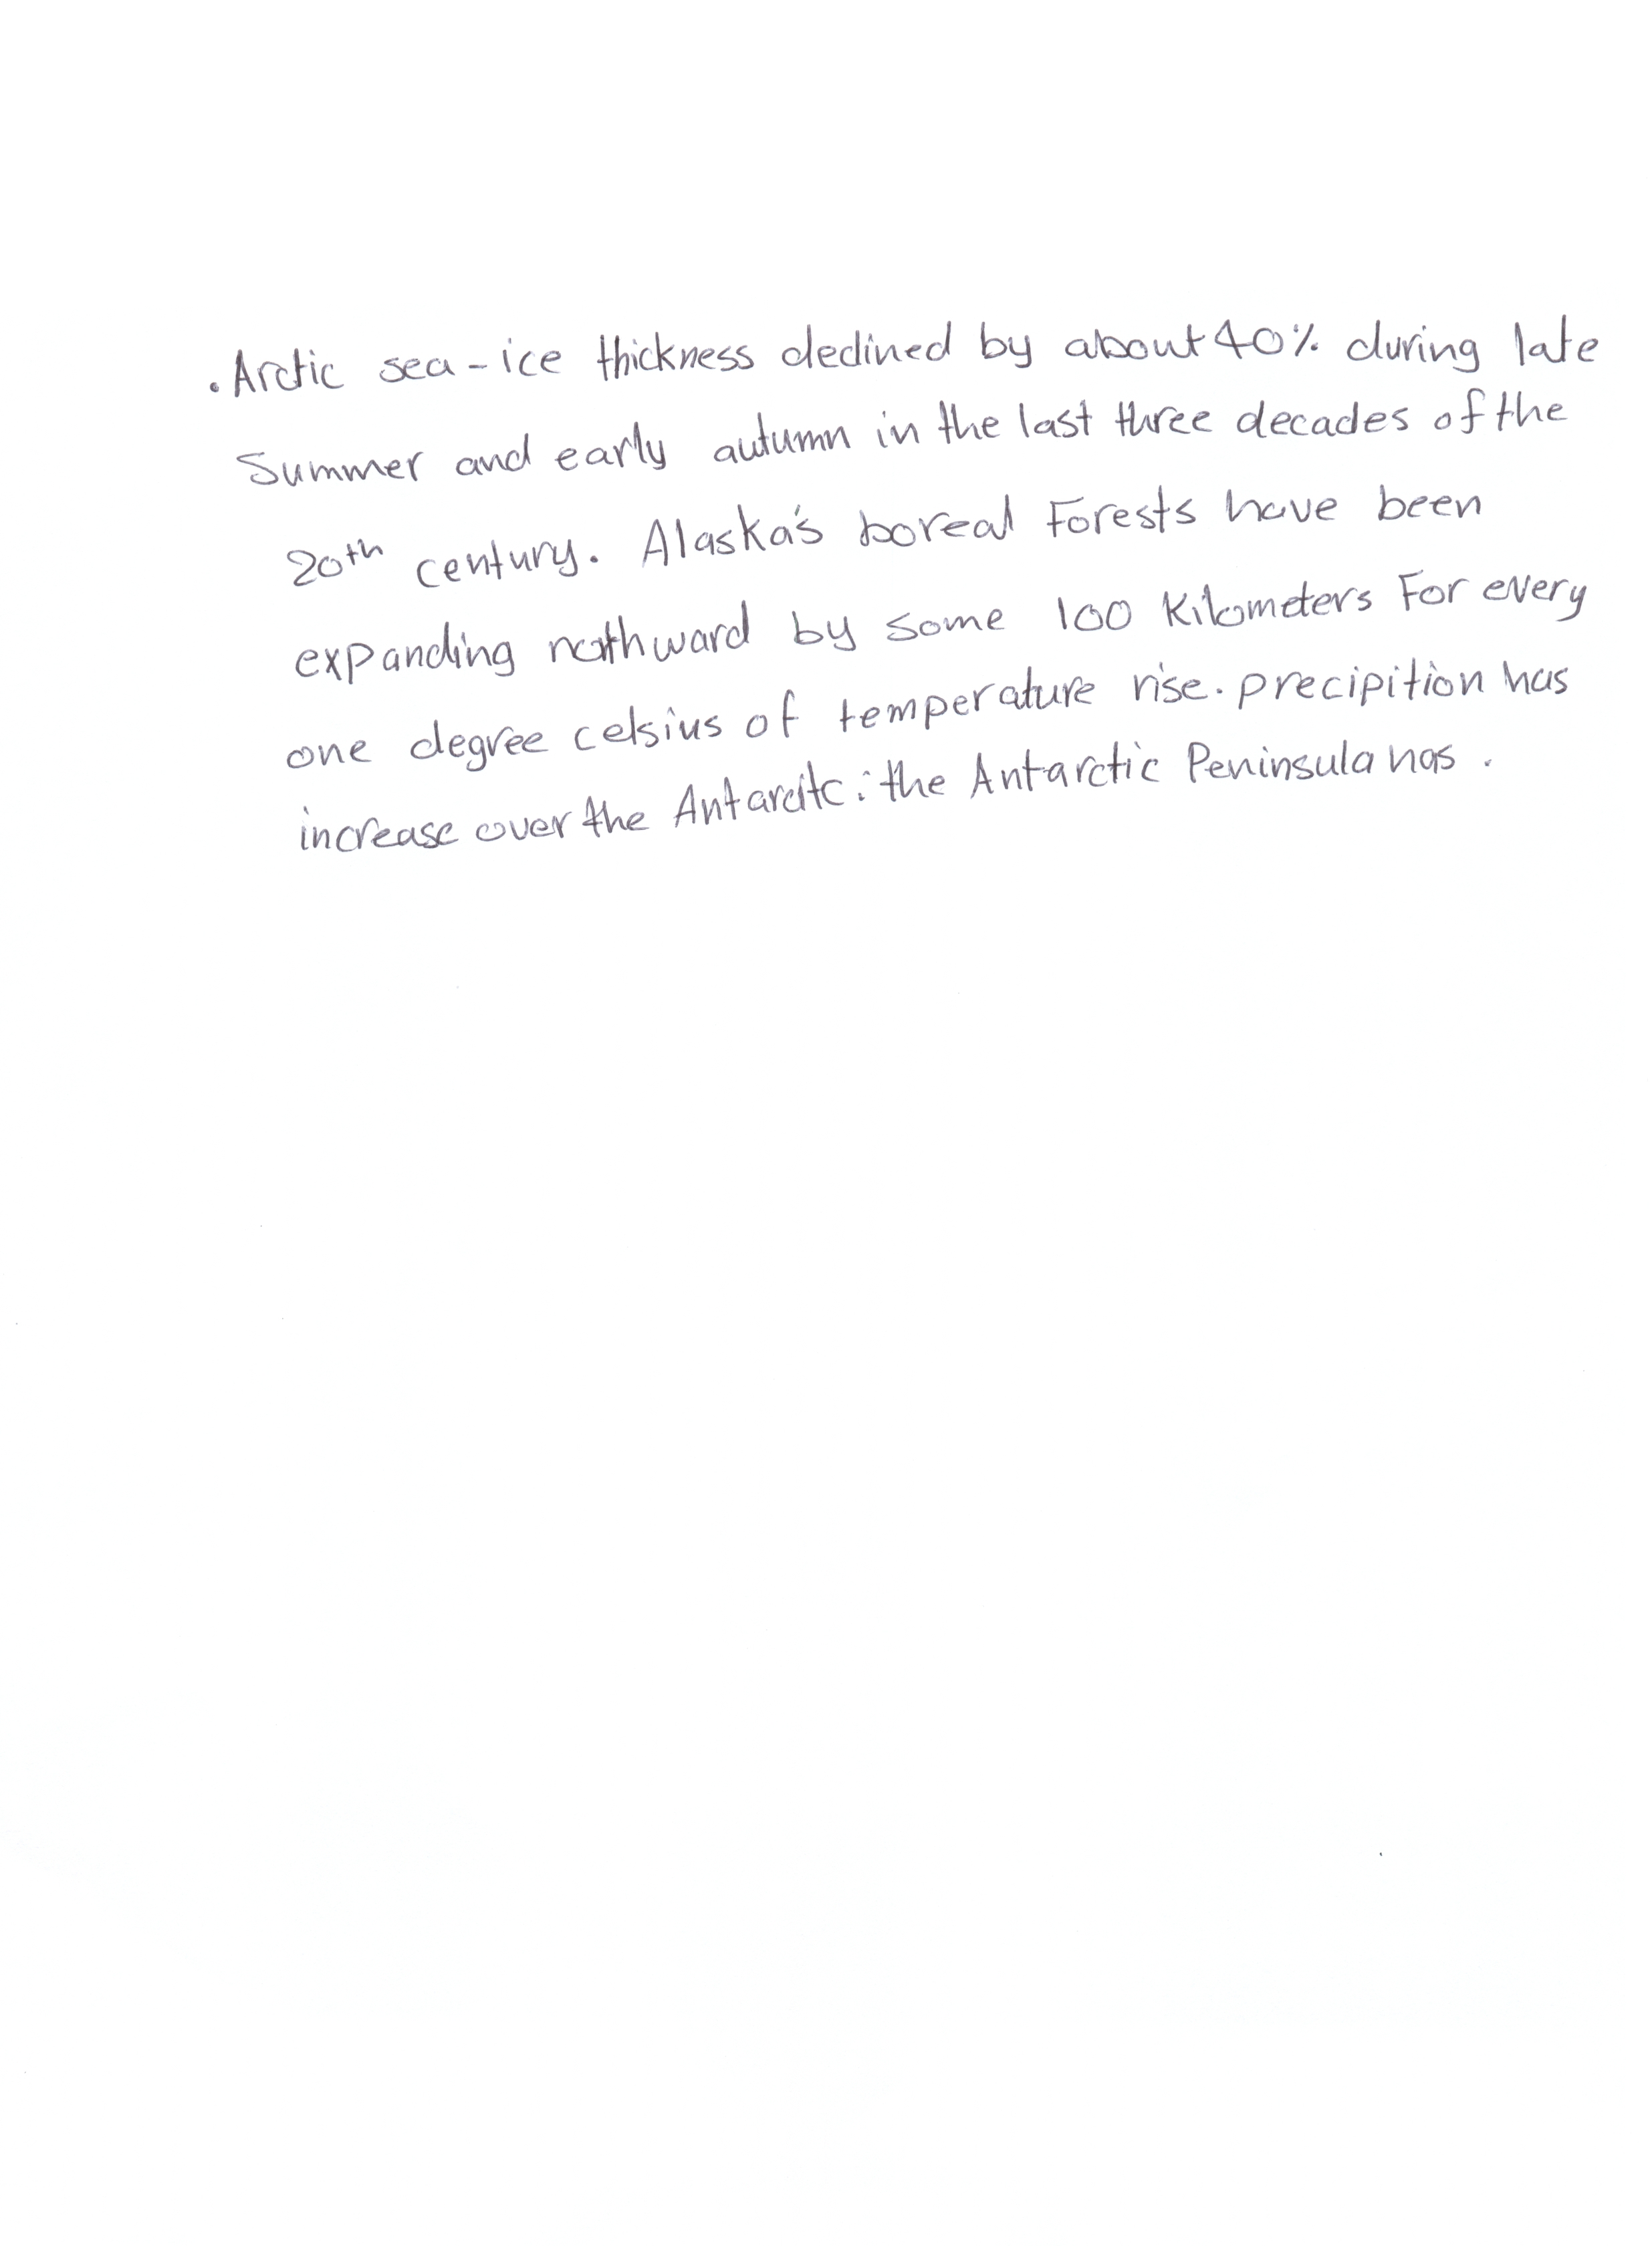 . Arctic sea-ice thickness declined by about 40% during late
Summer and early autumn in the last three decades of the
20th century. Alaska's boreal Forests have been
expanding northward by some 100 Kilometers For every
one degree celsius of temperature rise. precipition has
increase over the Antarcitc: the Antarctic Peninsula has .